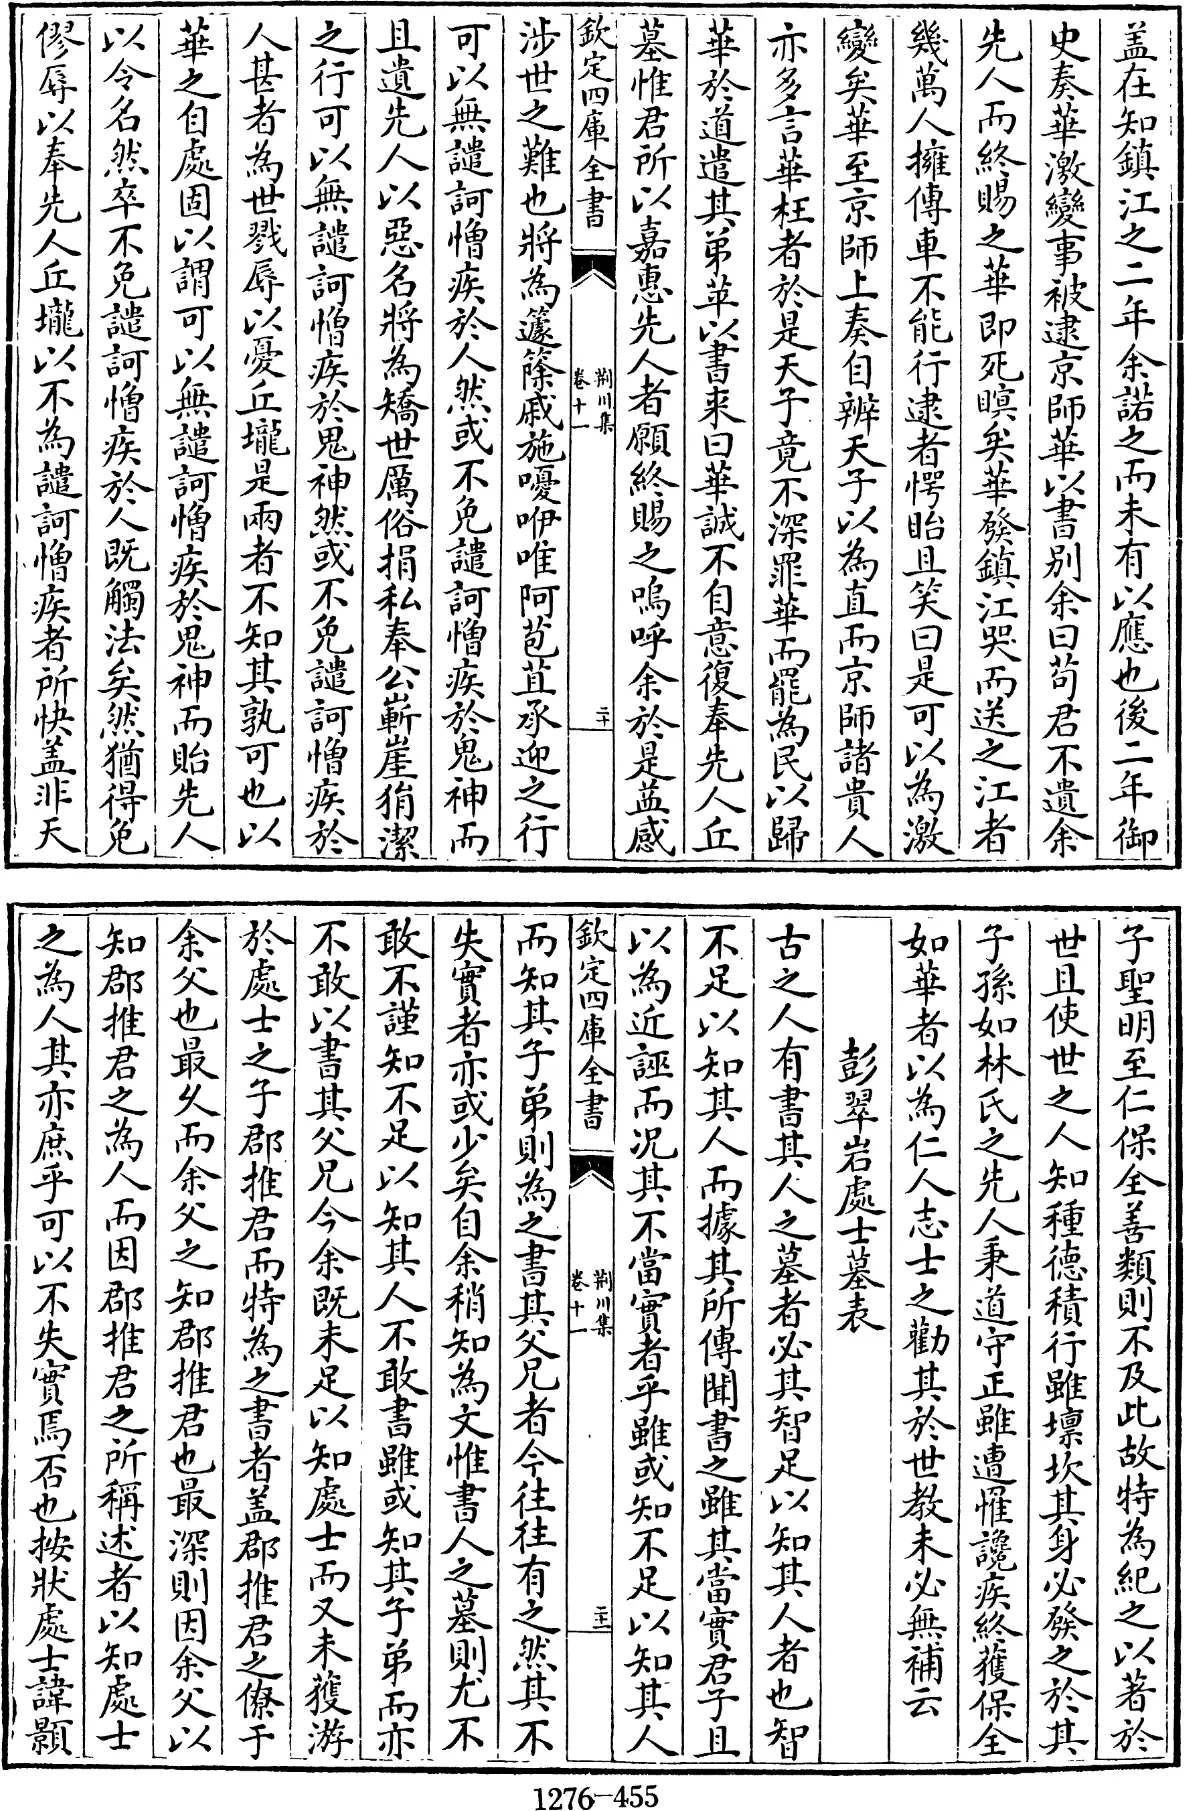 盖在知鎮江之二年余諾之而未有以應也後二年御
史奏華激變事被逮京師華以書别余曰苟君不遺余
先人而終賜之華即死瞑矣華發鎮江哭而送之江者
幾萬人擁傳車不能行逮者愕眙且笑曰是可以為激
變矣華至京師上奏自辨天子以為直而京師諸貴人
亦多言華枉者於是天子竟不深罪華而罷為民以歸
華於道遣其弟苹以書来曰華誠不自意復奉先人丘
墓惟君所以嘉惠先人者願終賜之嗚呼余於是益感
欽定四庫全書
荆川集
卷十一
二十
涉世之難也將為籧篨戚施嚘咿唯阿苞苴承迎之行
可以無譴訶憎疾於人然或不免譴訶憎疾於鬼神而
且遺先人以惡名將為矯世厲俗捐私奉公嶄崖狷潔
之行可以無譴訶憎疾於鬼神然或不免譴訶憎疾於
人甚者為世戮辱以憂丘壠是兩者不知其孰可也以
華之自處固以謂可以無譴訶憎疾於鬼神而貽先人
以令名然卒不免譴訶憎疾於人既觸法矣然猶得免
僇辱以奉先人丘壠以不為譴訶憎疾者所快盖非天
子聖明至仁保全善類則不及此故特為紀之以著於
世且使世之人知種德積行雖壈坎其身必發之於其
子孫如林氏之先人秉道守正雖遭罹讒疾終獲保全
如華者以為仁人志士之勸其於世教未必無補云
彭翠岩處士墓表
古之人有書其人之墓者必其智足以知其人者也智
不足以知其人而據其所傳聞書之雖其當實君子且
以為近誣而况其不當實者乎雖或知不足以知其人
欽定四庫全書
荆川集
卷十一
二十一
而知其子弟則為之書其父兄者今往往有之然其不
失實者亦或少矣自余稍知為文惟書人之墓則尤不
敢不謹知不足以知其人不敢書雖或知其子弟而亦
不敢以書其父兄今余既未足以知處士而又未獲游
於處士之子郡推君而特為之書者盖郡推君之僚于
余父也最久而余父之知郡推君也最深則因余父以
知郡推君之為人而因郡推君之所稱述者以知處士
之為人其亦庶乎可以不失實焉否也按狀處士諱顥
1276-455